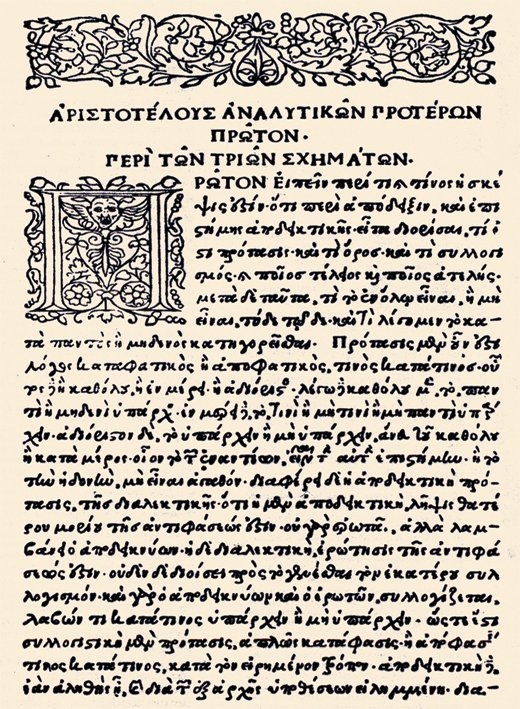 ἈΡΙΣΤΟΤΈΛΟΥΣ ἈΝΑΛΥΤΙΚΩ͂Ν ΠΡΟΤΈΡΩΝ
ΠΡΩ͂ΤΟΝ·
ΠΕΡῚ ΤΩ͂Ν ΤΡΙΩ͂Ν ΣΧΗΜΆΤΩΝ·
ΠΡΩ͂ΤΟΝ εἰπεῖν περὶ τί καὶ τίνος ἡ σκέ
ψις ἐστίν· ὅτι περὶ ἀπόδειξιν, καὶ ἐπι
στήμης ἀποδεικτικῆς· εἶτα διορίσαι, τί ἐ
στι πρότασις· καὶ τί ὅρος· καὶ τί συλλογι
σμός· καὶ ποῖος τέλειος καὶ ποῖος ἀτελής·
μετὰ δὲ ταῦτα, τί τὸ ἐν ὅλῳ εἶναι, ἢ μὴ
εἶναι, τόδε τῷδε· καὶ τί λέγομεν τὸ κα-
τὰ παντὸς ἢ μηδενὸς κατηγορεῖσθαι. Πρότασις μὲν οὖν ἐστὶ
λόγος καταφατικὸς ἢ ἀποφατικὸς, τινὸς κατά τινος· οὗ
τος δὲ ἢ καθόλου, ἢ ἐν μέρει, ἢ ἀδιόριστος. λέγω δὲ καθόλου μὲν, τὸ παν
τὶ ἢ μηδενὶ ὑπάρχειν· ἐν μέρει δὲ, τὸ τινὶ ἢ μὴ τινὶ ἢ μὴ παντὶ ὑπάρ
χειν· ἀδιόριστον δὲ, τὸ ὑπάρχειν ἢ μὴ ὑπάρχειν, ἄνευ τοῦ καθόλου
ἢ κατὰ μέρος· οἷον τὸ τῶν ἐναντίων, εἶναι τὴν αὐτὴν ἐπιστήμην· ἢ τὸ
τὴν ἡδονὴν, μὴ εἶναι ἀγαθόν· διαφέρει δὲ ἡ ἀποδεικτικὴ πρό-
τασις, τῆς διαλεκτικῆς· ὅτι ἡ μὲν ἀποδεικτικὴ, λῆψις θατέ
ρου μορίου τῆς ἀντιφάσεώς ἐστιν· οὐ γὰρ ἐρωτᾷ, ἀλλὰ λαμ-
βάνει ὁ ἀποδεικνύων· ἡ δὲ διαλεκτικὴ, ἐρώτησις τῆς ἀντιφά
σεώς ἐστιν· οὐδὲν δὲ διοίσει πρὸς τὸ γενέσθαι τὸν ἑκατέρου συλ
λογισμόν· καὶ γὰρ ὁ ἀποδεικνύων καὶ ὁ ἐρωτῶν, συλλογίζεται,
λαβών τι κατά τινος ὑπάρχειν ἢ μὴ ὑπάρχειν· ὥστε ἔσται
συλλογιστικὴ μὲν πρότασις, ἁπλῶς κατάφασις· ἢ ἀπόφασίς
τινος κατά τινος, κατὰ τὸν εἰρημένον τρόπον· ἀποδεικτικὴ δὲ,
ἐὰν ἀληθὴς ᾖ, καὶ διὰ τῶν ἐξ ἀρχῆς ὑποθέσεων εἰλημμένη· δια-